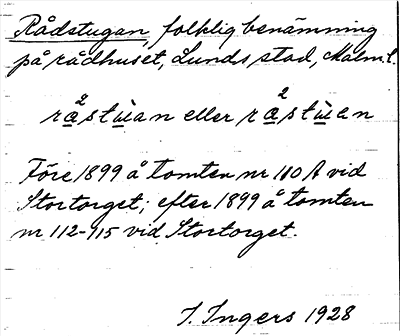 Rådstugan, folklig benämning
på rådhuset, Lunds stad, Malm. l.
rå̲stu̲̇an eller rå̲stu̲̇an
Före 1899 å tomten nr 110 A vid
Stortorget; efter 1899 å tomten
nr 112-115 vid Stortorget.
I. Ingers 1928